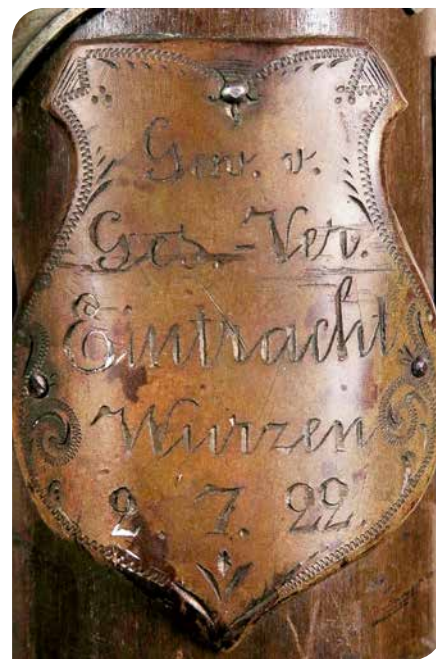 Gew. v.
Ges.-Ver.
Eintracht
Wurzen
2. 7. 22.